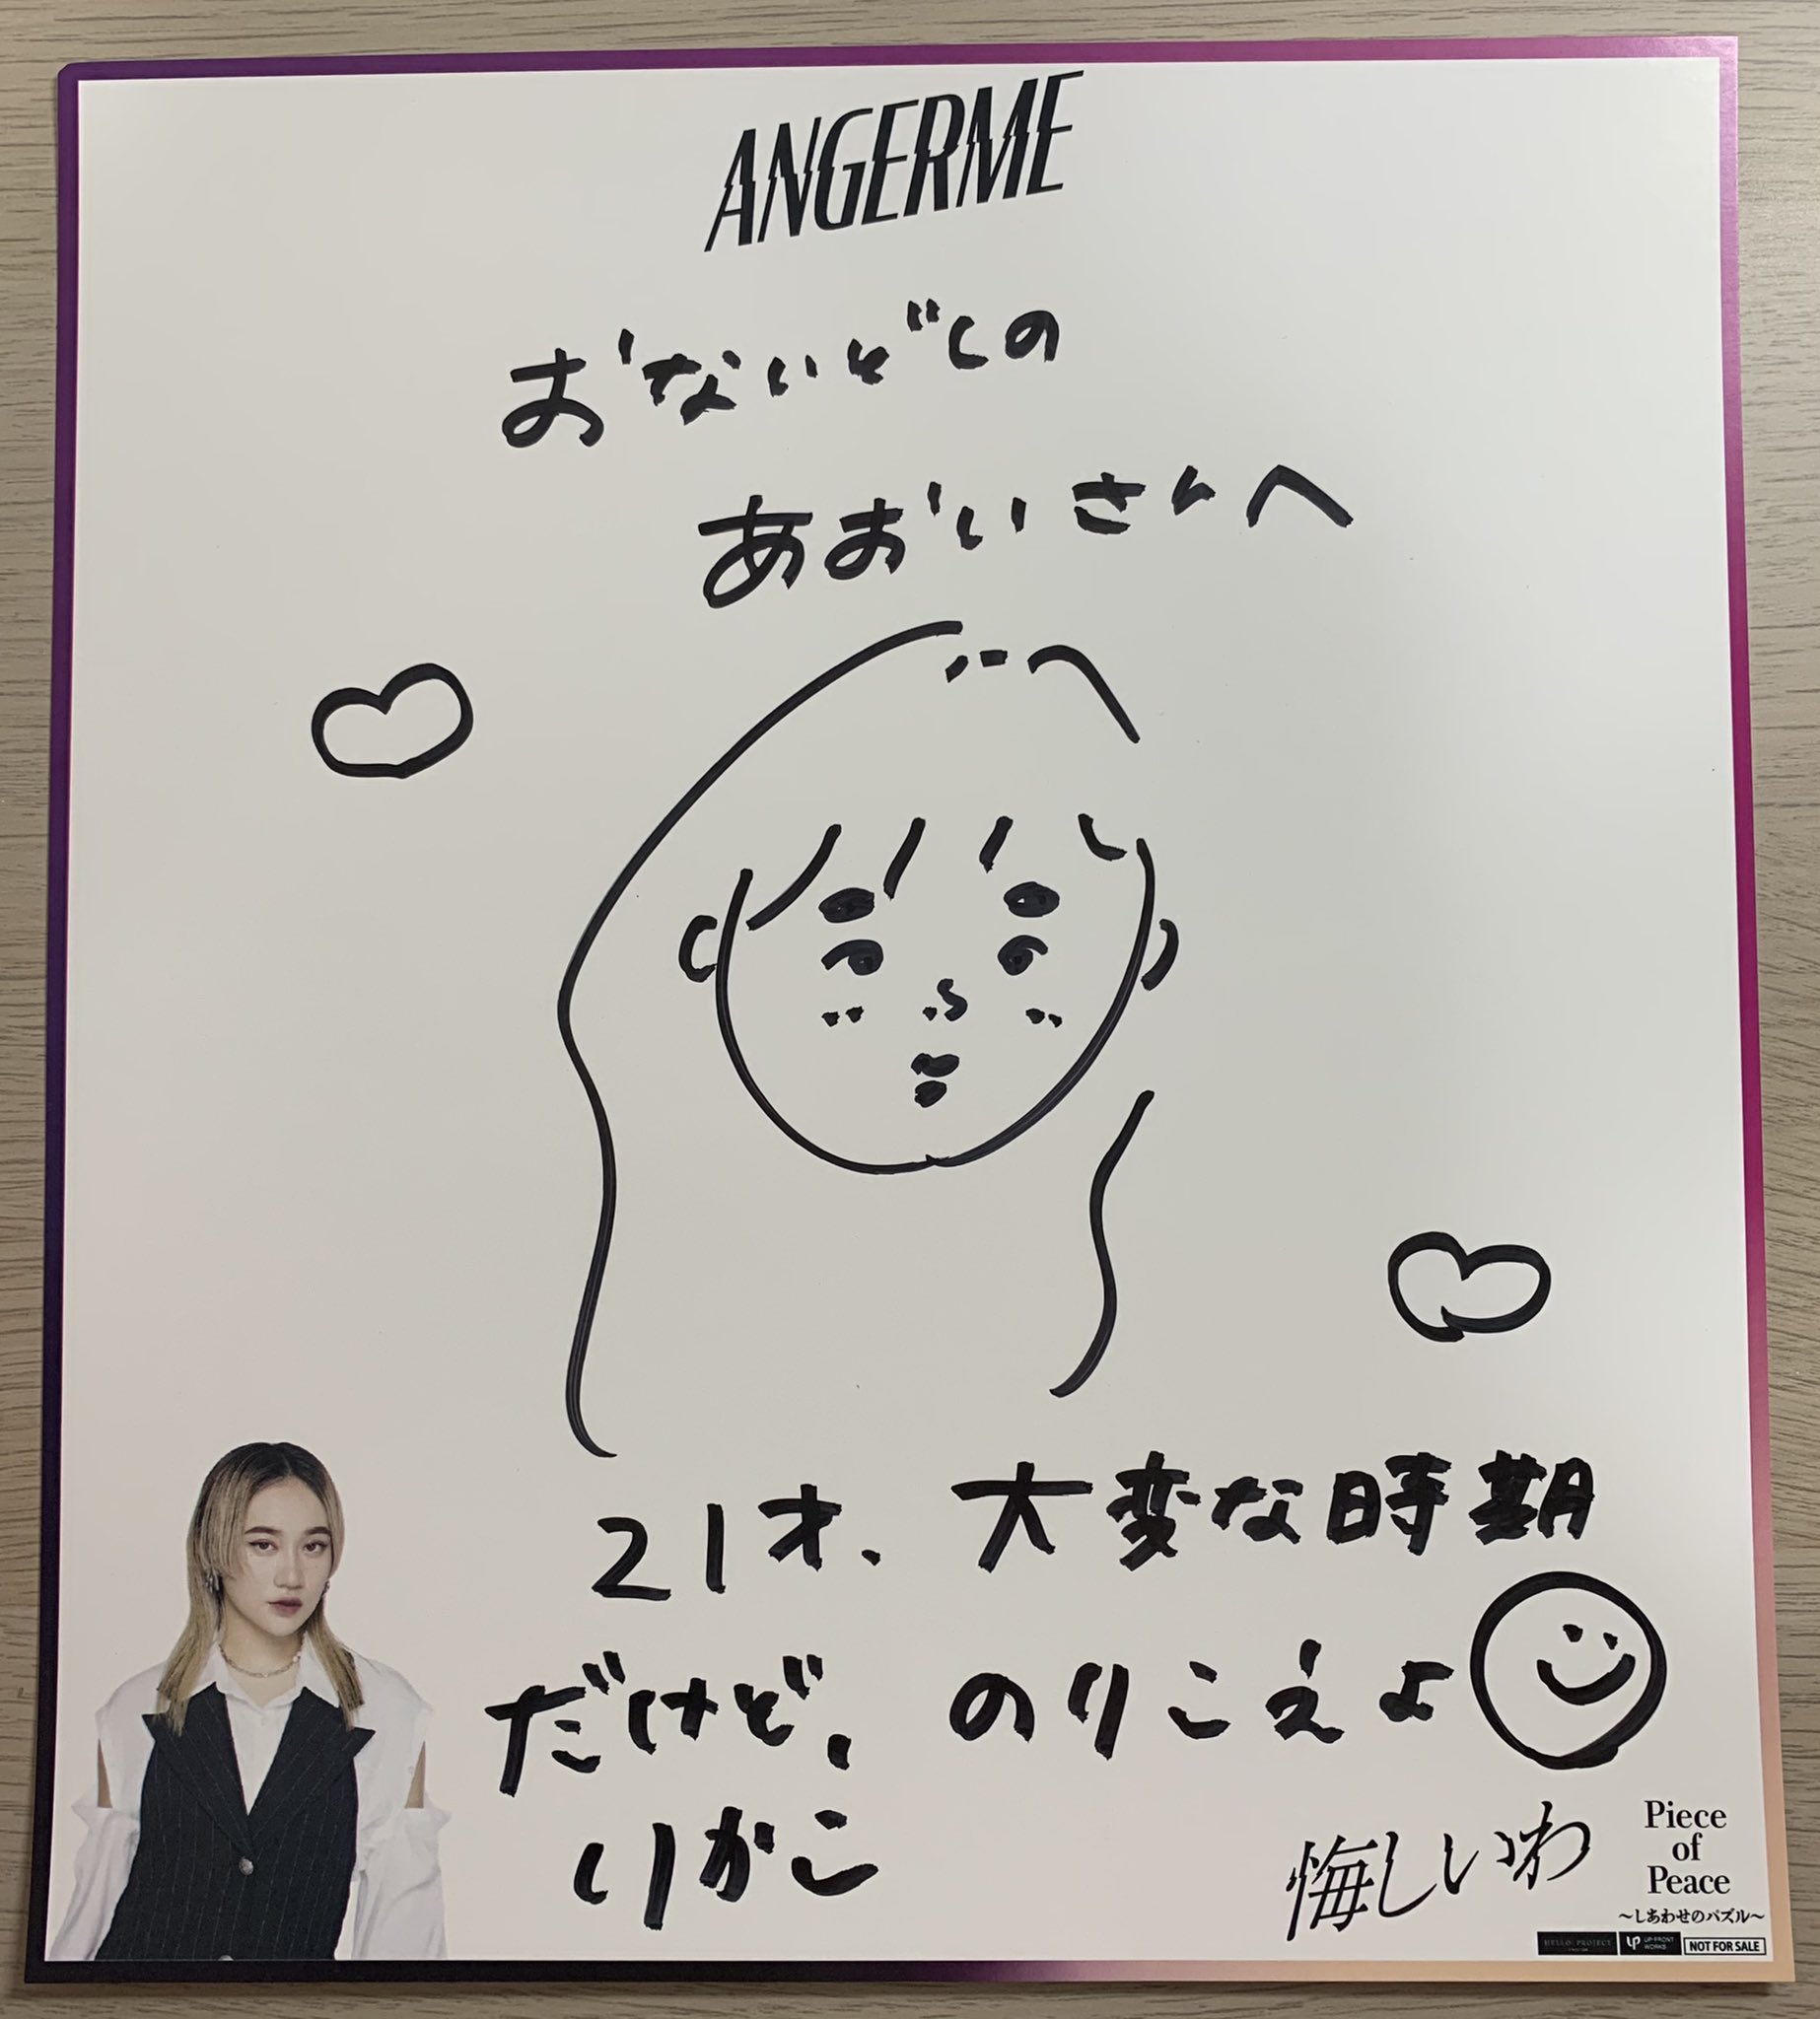 ANGERME
おないどしの
あおいさんへ
21才、大変な時期
だけど、のりこえよ
りかこ
悔しいわ
Piece
of
Peace
〜しあわせのパズル〜
HELLO! PROJECT
UP-FRONT
WORKS
NOT FOR SALE